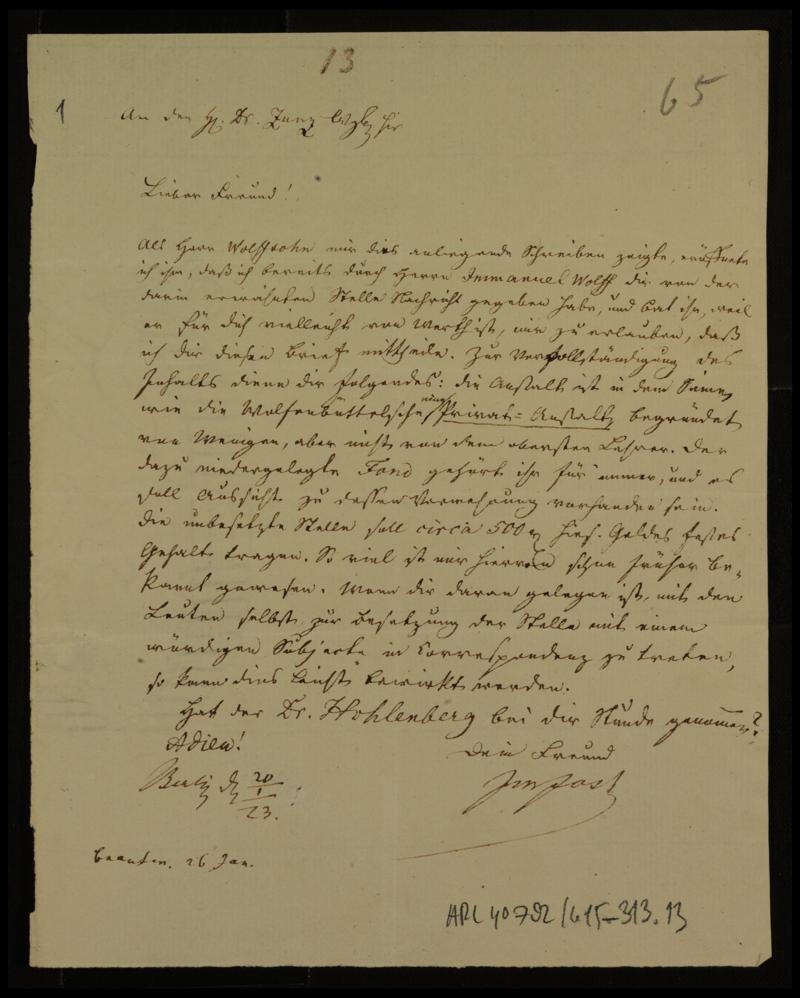 13
65
1
An den H. Dr. Zunz hier
Lieber Freund!
Als Herr Wolfssohn mir dies anliegende Schreiben zeigte, eröffnete
ich ihm, daß ich bereits durch Herrn Immanuel Wolff dir von der
darin erwähnten Stelle Nachricht gegeben habe, und bat ihn, weil
er für dich vielleicht von Werth ist, mir zu erlauben, daß
ich dir diesen Brief mittheile. Zur Vervollständigung des
Inhalts diene dir folgendes: die Anstalt ist in dem Sinne
wie die Wolfenbüttelsche Privat-Anstalt begründet
von Wenigen, aber nicht von dem obersten Lehrer. Der
dazu niedergelegte Fond gehört ihr für immer, und es
soll Aussicht zu dessen Vermehrung vorhanden sein.
Die unbesetzte Stelle soll circa 500 hies. Geldes festes
Gehalt tragen. So viel ist mir hiervon schon früher be-
kannt gewesen. Wenn dir daran gelegen ist, mit den
Leuten selbst zur Besetzung der Stelle mit einem
würdigen Subjecte in Correspondenz zu treten,
so kann dies leicht bewirkt werden.
Hat der Dr. Hohlenberg bei dir Stunde genommen?
Adieu!
Dein Freund
Berlin d. 20/1 23.
JM Jost
beantw. 26 Jan.
ARC 4o 792/G15-313.13